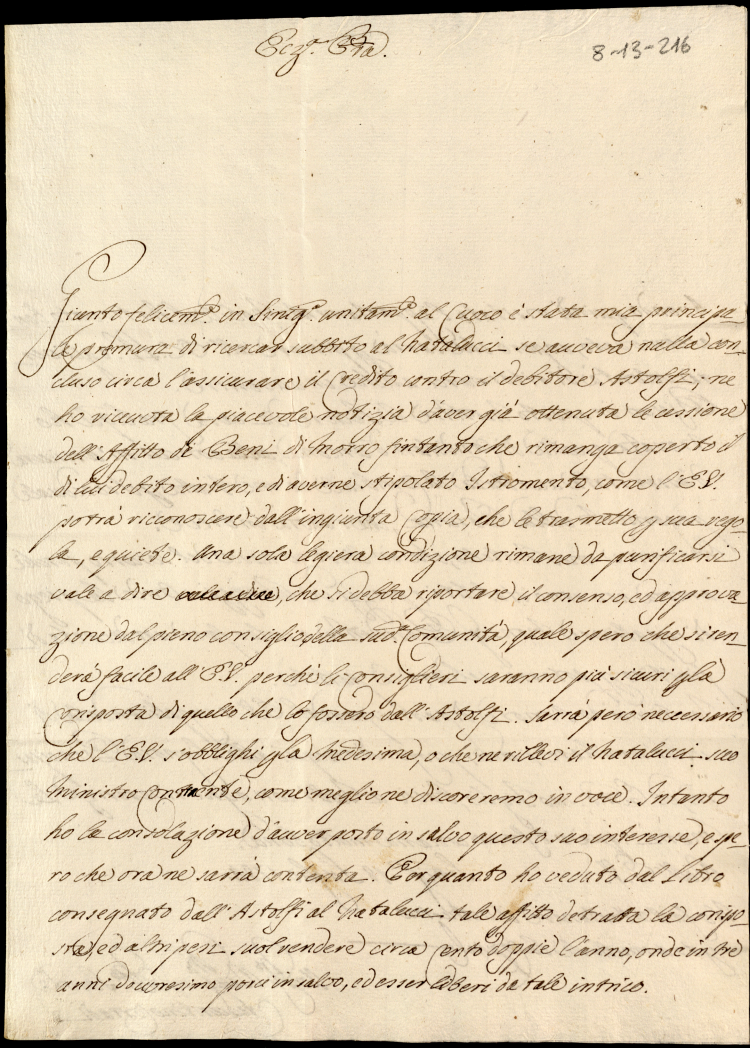 Ecza. Pna.
8-13-216
Giunto felicemte. in Sinigª. unitamte. al Cuoco è stata mia principa-
le premura di ricercar subbito al Natalucci se avveva nulla con-
cluso circa l'assicurare il Credito contro il debitore Astolfi, ne
ho ricevuta la piacevole notizia d'aver già ottenuta le cessione
dell'Affitto de Beni di Morro fintanto che rimanga coperto il
di cui debito intero, e di averne stipolato Istromento, come l'E.V.
potrà riconoscere dall'ingiunta Copia, che le trasmetto p sua rego-
la, e quiete. Una sola legiera condizione rimane da purificarsi
vale a dire, che si debba riportare il consenso, ed approva-
zione dal pieno consiglio della sudª. Comunità, quale spero che si ren-
derà facile all'E.V. perchè li Consiglieri saranno più sicuri p la
Corisposta di quello che lo fossero dall'Astolfi. Sarrà però neccessario
che l'E.V. s'obblighi p la Medesima, o che ne rillevi il Natalucci suo
Ministro, come meglio ne discoreremo in voce. Intanto
ho la consolazione d'avver posto in salvo questo suo interesse, e spe-
ro che ora ne sarrà contenta. Per quanto ho veduto dal Libro
consegnato dall'Astolfi al Natalucci tale affitto detratta la corispo-
sta, ed altri pesi suol rendere circa Cento doppie l'anno, onde in tre
anni doveresimo porci in salvo, ed esser liberi da tale intrico.